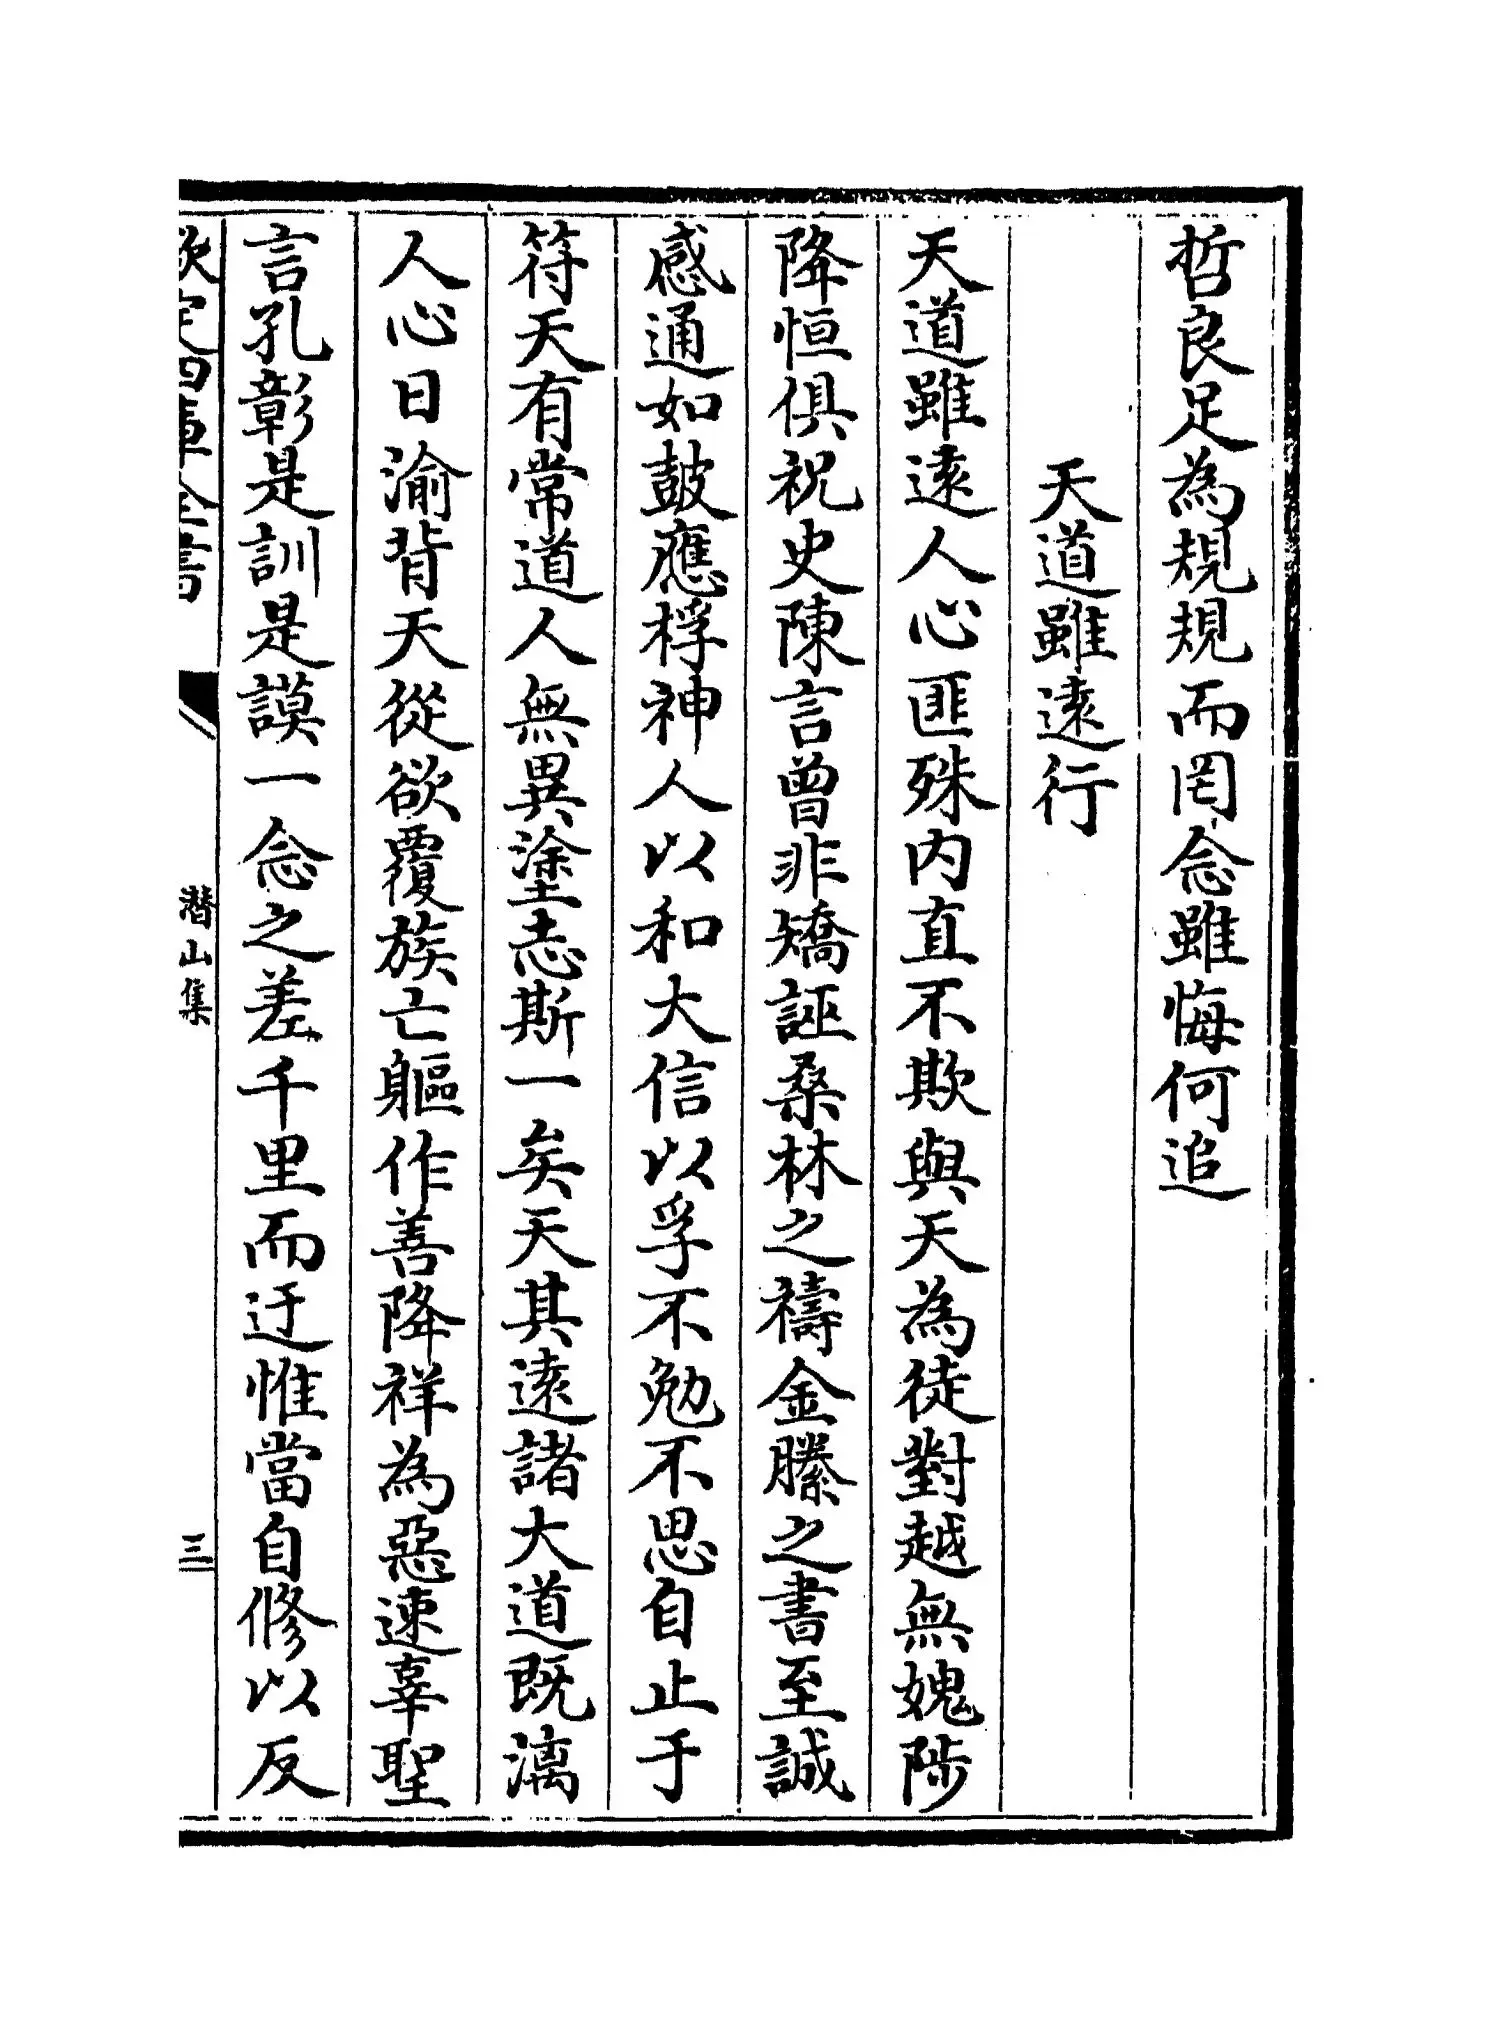 哲良足為規規而罔念雖悔何追
天道雖遠行
天道雖遠人心匪殊内直不欺與天為徒對越無媿陟
降恒俱祝史陳言曾非矯誣桑林之禱金縢之書至誠
感通如鼓應桴神人以和大信以孚不勉不思自止于
符天有常道人無異塗志斯一矣天其遠諸大道既漓
人心日渝背天從欲覆族亡軀作善降祥為惡速辜聖
言孔彰是訓是謨一念之差千里而迂惟當自修以反
欽定四庫全書
潛山集
三